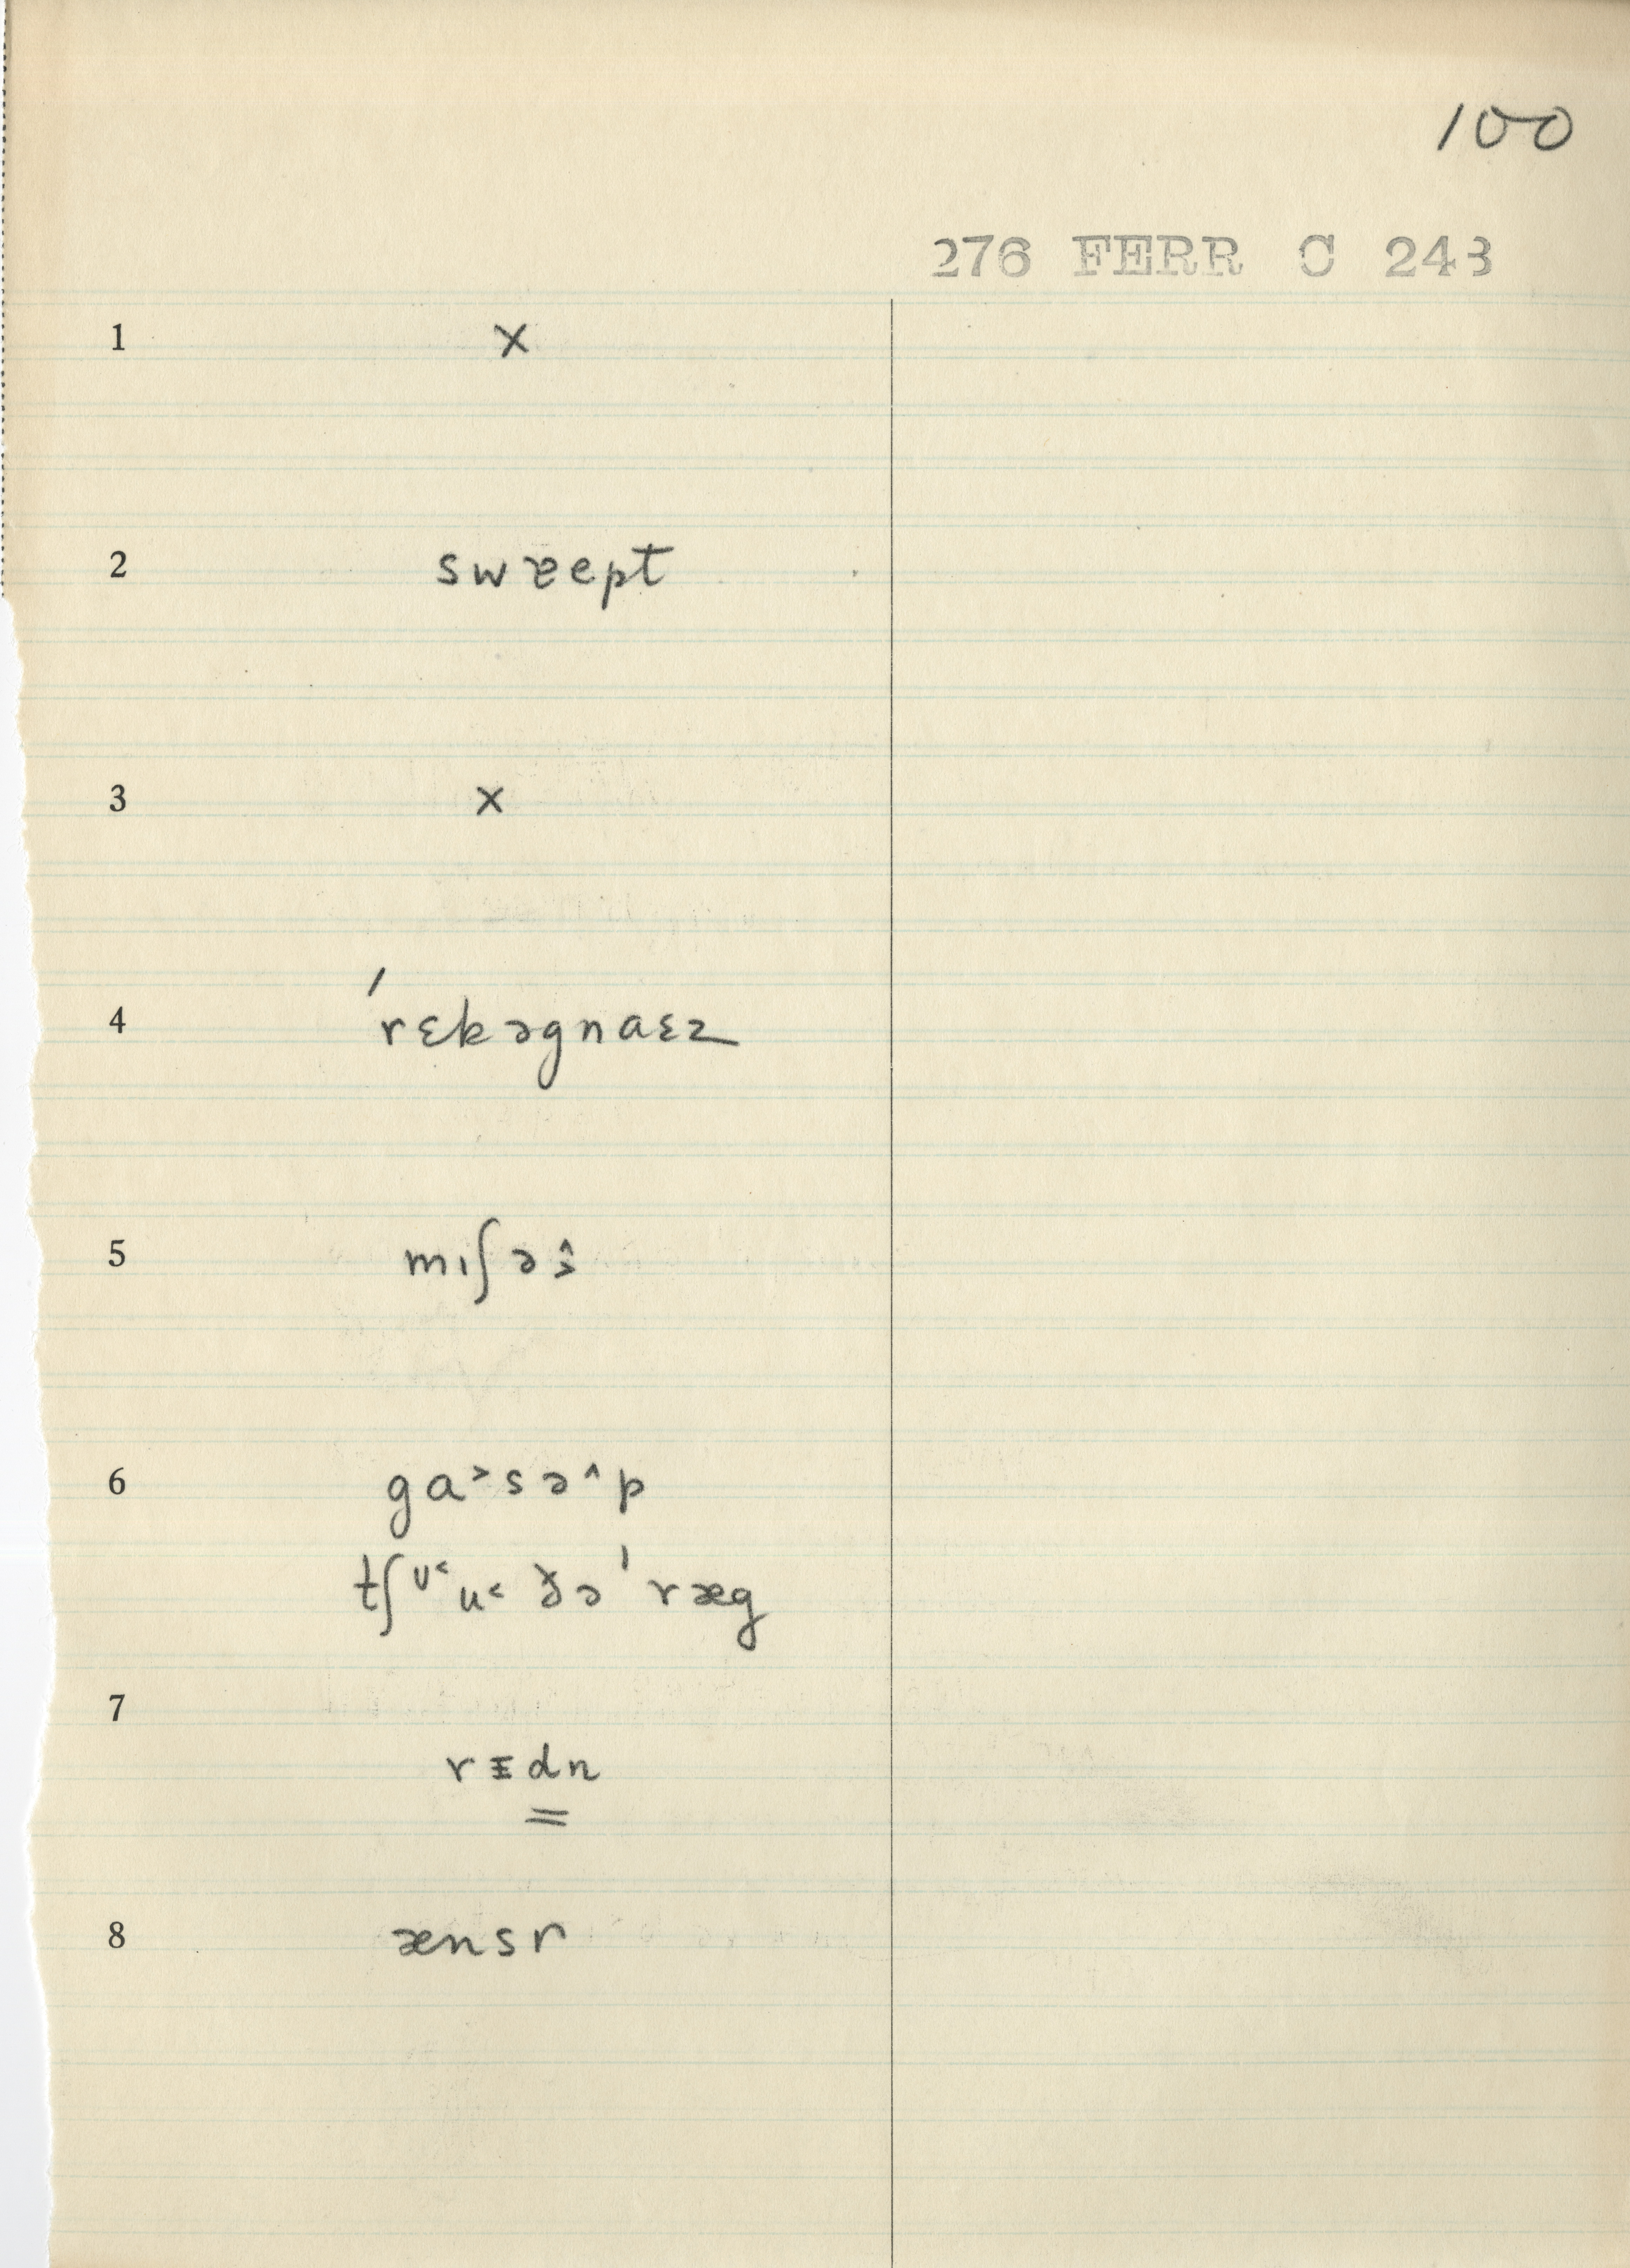 100
276 FERR C 243
1 x
2 swɛept
3 x
4 ˈrɛkəgnaɛz
5 mıʃəŝ̭
6 ga˃sə˄p
tʃᶷ˂u˂ ðəˈræg
7
rɪdn
8 ænsr